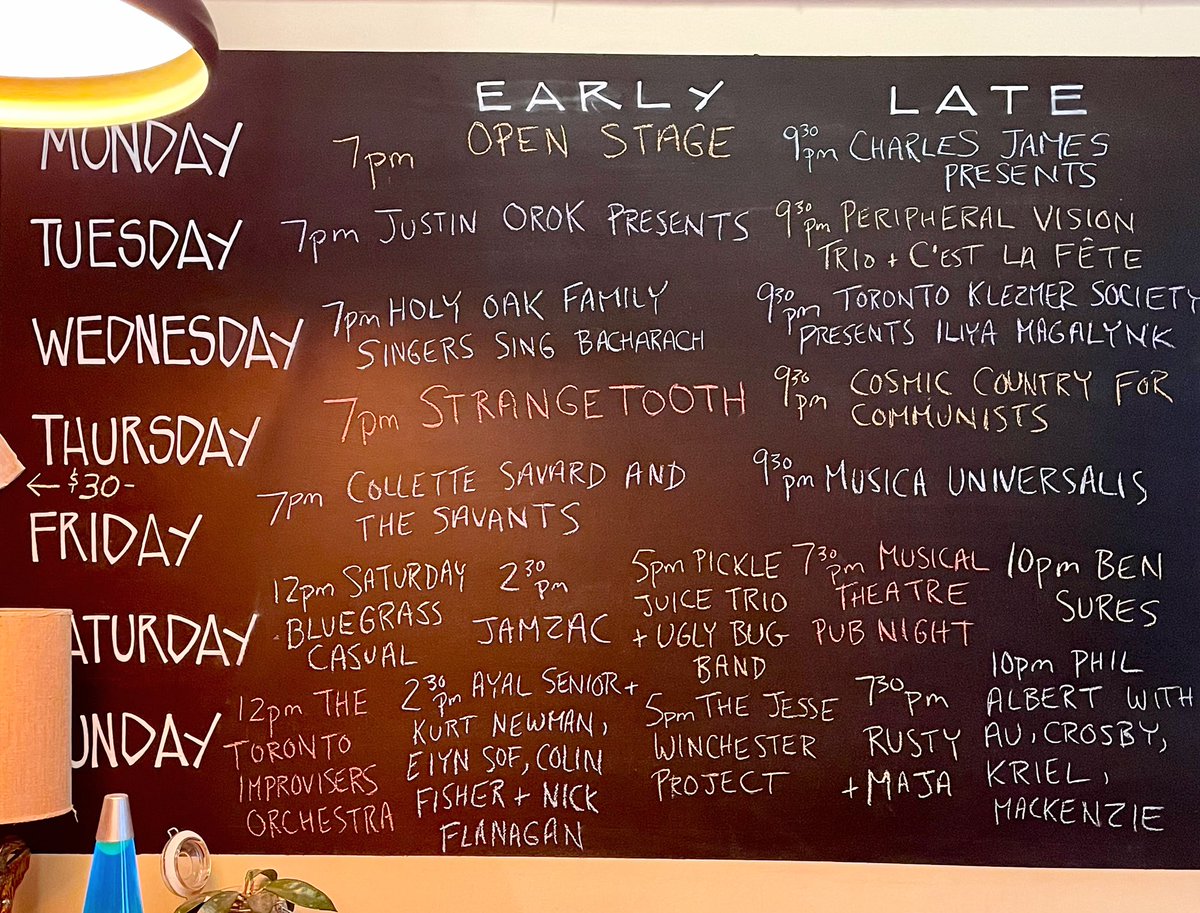 EARLY LATE
MONDAY 7pm OPEN STAGE 9³⁰ pm CHARLES JAMES
PRESENTS
TUESDAY 7pm JUSTIN OROK PRESENTS 9³⁰ pm PERIPHERAL VISION
TRIO + C'EST LA FÊTE
WEDNESDAY 7pm HOLY OAK FAMILY
SINGERS SING BACHARACH
9³⁰ pm TORONTO KLEZMER SOCIETY
PRESENTS ILIYA MAGALYNK
THURSDAY 7pm STRANGETOOTH 9³⁰ pm COSMIC COUNTRY FOR
COMMUNISTS
← $30-
FRIDAY 7pm COLLETTE SAVARD AND
THE SAVANTS
9³⁰ pm MUSICA UNIVERSALIS
SATURDAY
12pm SATURDAY
BLUEGRASS
CASUAL
2³⁰ pm
JAMZAC
5pm PICKLE
JUICE TRIO
+ UGLY BUG
BAND
7³⁰ pm MUSICAL
THEATRE
PUB NIGHT
10pm BEN
SURES
SUNDAY
12pm THE
TORONTO
IMPROVISERS
ORCHESTRA
2³⁰ pm AYAL SENIOR +
KURT NEWMAN,
EIYN SOF, COLIN
FISHER + NICK
FLANAGAN
5pm THE JESSE
WINCHESTER
PROJECT
7³⁰ pm
RUSTY
+ MAJA
10pm PHIL
ALBERT WITH
AU, CROSBY,
KRIEL,
MACKENZIE